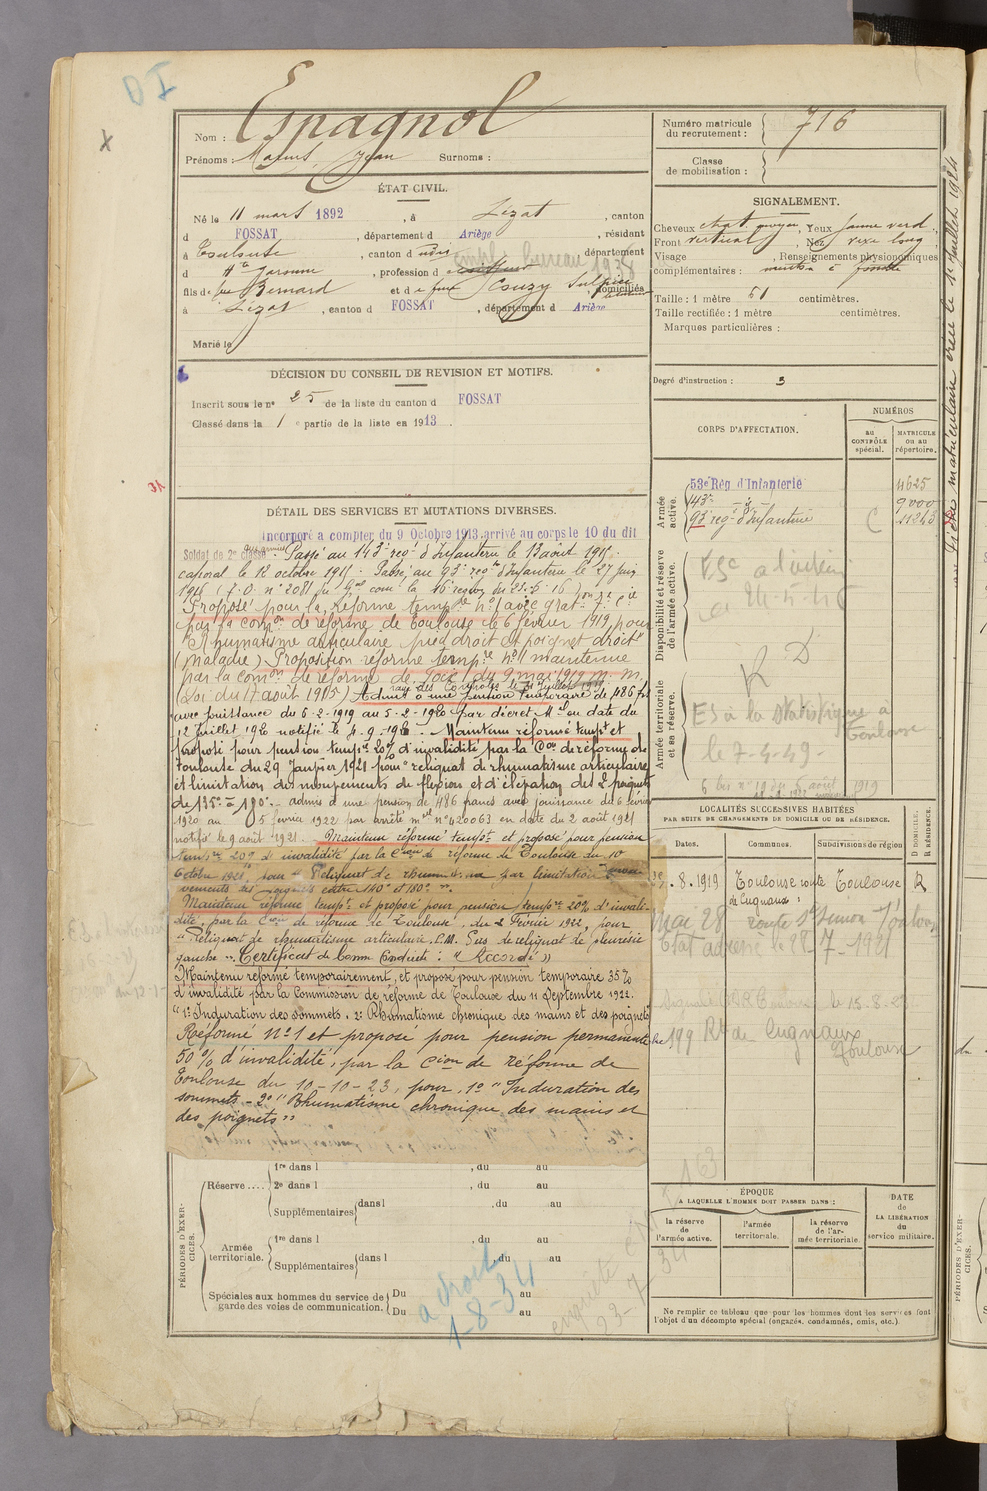 Espagnol
Nom :
Prénoms : Jean Surnoms :
Numéro matricule
du recrutement : 716
Classe
de mobilisation :
ÉTAT CIVIL.
Né le 11 mars 1892, à Lézat, canton
d FOSSAT, département d Ariège, résidant
à Toulouse, canton d udis, département
d Hte Garonne, profession d employé bureau 1938
fils de feu Bernard et de feue Couzy Sulpice domiciliés
à Lézat, canton d FOSSAT, département d Ariège
Marié le
SIGNALEMENT.
Cheveux chat. moyen, Yeux jaune verd.
Front vertical, Nez long
Visage , Renseignements physionomiques
complémentaires : menton à fossette
Taille : 1 mètre 61 centimètres.
Taille rectifiée : 1 mètre centimètres.
Marques particulières :
Degré d'instruction : 3
DÉCISION DU CONSEIL DE REVISION ET MOTIFS.
Inscrit sous le n° 25 de la liste du canton d FOSSAT
Classé dans la 1 e partie de la liste en 1913.
CORPS D'AFFECTATION.
NUMÉROS
au
CONTRÔLE
spécial.
MATRICULE
ou au
répertoire.
Armée
active.
53e Rég d'Infanterie 4625
143e - d° - 9000
93 regt d'Infanterie C 11243
Disponibilité et réserve
de l'armée active.
R D
Armée territoriale
et sa réserve.
ES à la Statistique à
Toulouse
le 7-4-49-
DÉTAIL DES SERVICES ET MUTATIONS DIVERSES.
Incorporé a compter du 9 Octobre 1913 arrivé au corps le 10 du dit
Soldat de 2e classe. Passé au 143e regt d'Infanterie le 13 août 1915.
caporal le 12 octobre 1915. Passé au 93e regt d'Infanterie le 27 juin
1916 (f. O. n° 2081 du Gal com la 16e region du 25-6-16
Proposé pour la réforme tempre n°1 avec graton 7e cie
par la comon de réforme de Toulouse le 6 février 1919 pour
"Rhumatisme articulaire pied droit et poignet droit"
(maladie). Proposition réforme tempre n°1 maintenue
par la comon de réforme de Foix du 9 mai 1919 M. M.
rayé des Contrôles le 31 Juillet 1919
(Loi du 17 août 1915) Admis à une pension temporaire de 486 frs
avec jouissance du 6-2-1919 au 5-2-1920 par décret Mel en date du
12 Juillet 1920 notifié le 4-9-1920. Maintenu réformé tempt et
proposé pour pension tempre 20% d'invalidité par la Con de réforme de
Toulouse du 29 Janvier 1921 pour "reliquat de rhumatisme articulaire
et limitation des mouvements de flexion et d'élévation des 2 poignets
de 135° = 190°". admis à une pension de 486 francs avec jouissance du 6 février
1920 au 5 fevrier 1922 par arrêté mel n° 420063 en date du 2 août 1921
notifié le 9 août 1921. Maintenu réformé tempt et proposé pour pension
tempre 20% d'invalidité par la Cion de réforme de Toulouse du 10
Octobre 1921, pour "Reliquat de rhumat. par limitation
vements des poignets entre 140° et 180°".
Maintenu réformé tempt et proposé pour pension tempre 20% d'invali-
dité, par la Cion de réforme de Toulouse, du 2 Février 1922, pour
"Reliquat de rhumatisme articulaire. P.M. Pas de reliquat de pleurésie
gauche". Certificat de Bonne Conduite : "Accordé"
Maintenu réformé temporairement, et proposé pour pension temporaire 35%
d'invalidité par la Commission de réforme de Toulouse du 11 Septembre 1922.
"1° Induration des sommets. 2° Rhumatisme chronique des mains et des poignets
Réformé N°1 et proposé pour pension permanente
50% d'invalidité, par la Cion de réforme de
Toulouse du 10-10-23, pour, 1° "Induration des
sommets - 2° "Rhumatisme chronique des mains et
des poignets"
LOCALITÉS SUCCESSIVES HABITÉES
PAR SUITE DE CHANGEMENTS DE DOMICILE OU DE RÉSIDENCE.
Dates.
Communes.
Subdivisions de région
D DOMICILE.
R RÉSIDENCE.
.8.1919 Toulouse route Toulouse R
de Cugnaux
28 route St Simon Toulouse
28-7-1921
le 15-8-23
199 Rte de Cugnaux
Toulouse
PÉRIODES D'EXER-
CICES.
Réserve....
1re dans l , du au
2e dans l , du au
Supplémentaires dans l , du au
Armée
territoriale.
1re dans l , du au
Supplémentaires dans l , du au
Spéciales aux hommes du service de
garde des voies de communication.
Du au
Du au
a droit
1-8-34
enquête
23-7-34
ÉPOQUE
A LAQUELLE L'HOMME DOIT PASSER DANS :
la réserve
de
l'armée active.
l'armée
territoriale.
la réserve
de l'ar-
mée territoriale.
DATE
de
LA LIBÉRATION
du
service militaire.
Ne remplir ce tableau que pour les hommes dont les services font
l'objet d'un décompte spécial (engagés, condamnés, omis, etc.).
PÉRIODES D'EXER-
CICES.